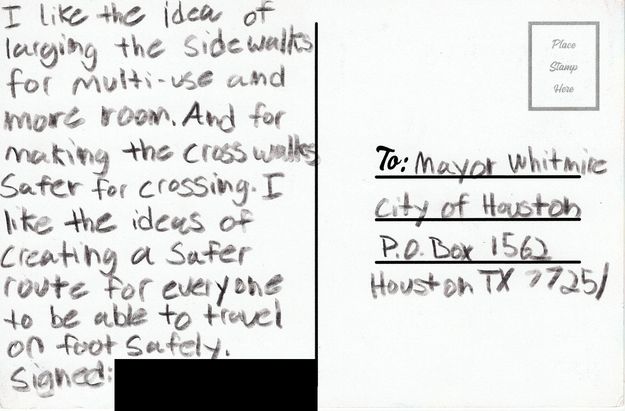 I like the idea of
larging the sidewalks
for multi-use and
more room. And for
making the crosswalks
safer for crossing. I
like the ideas of
creating a safer
route for everyone
to be able to travel
on foot safely.
Signed:
Place
Stamp
Here
To: Mayor Whitmire
City of Houston
P.O. Box 1562
Houston TX 77251